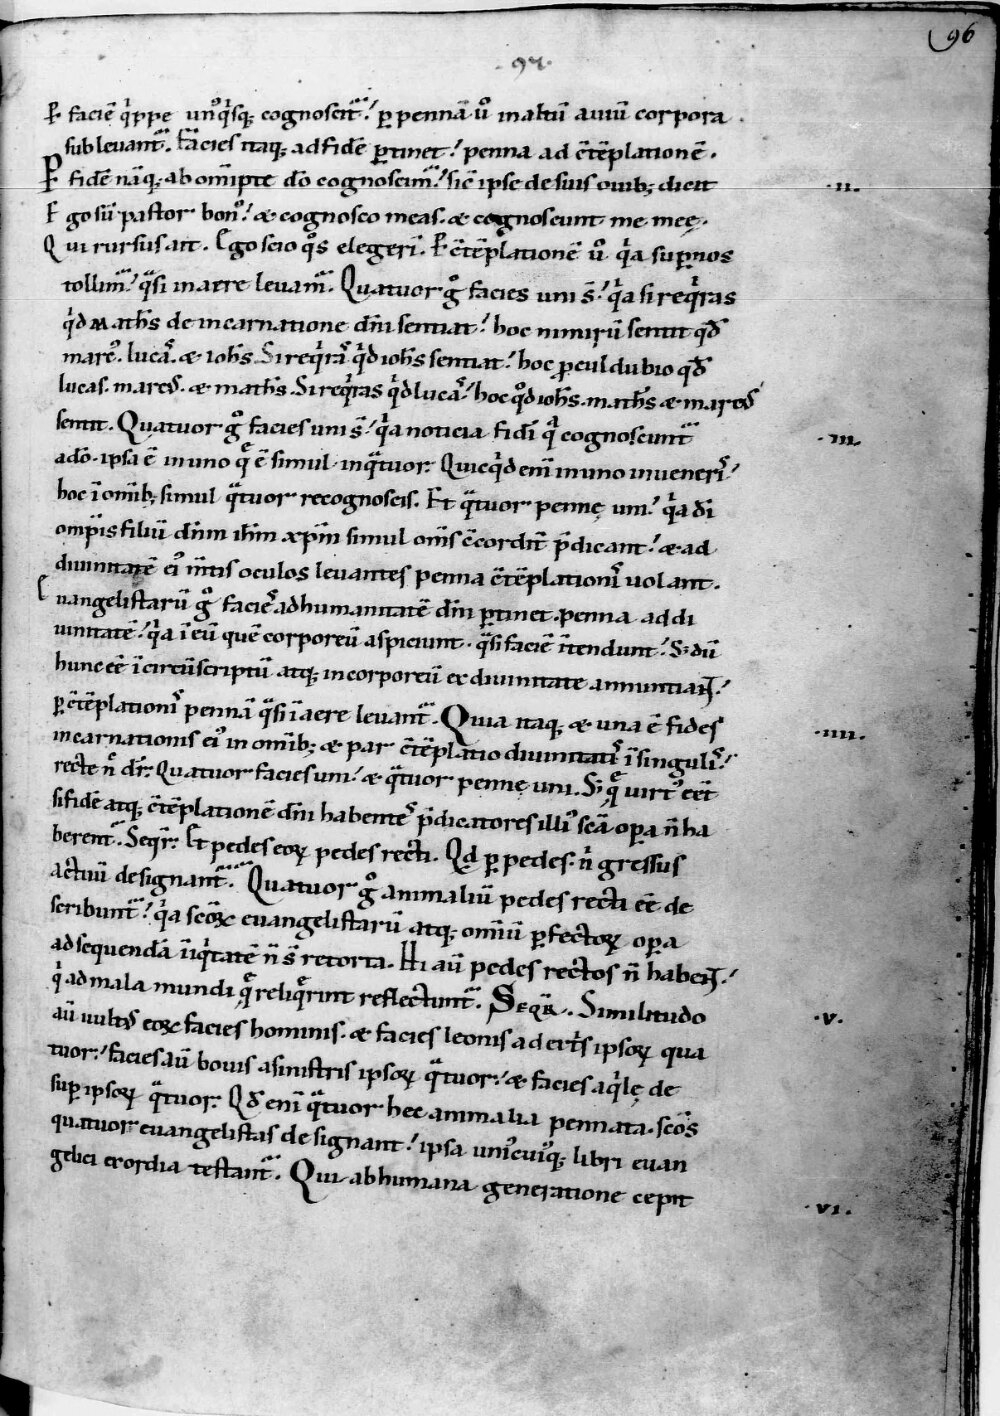 96
·97·
P facie᷃ q͛ppe un᷒q͛sq; cognoscit᷑; p̱ pennā u᷒ in altū aviū corpora
sublevant᷑. Facies itaq; ad fidē p̱tinet; penna ad c̄tēplationē.
P fidē nāq; ab om̄ipte dō cognoscim᷑; sic̄ ipse de suis ovib; dicit ·II·
Ego sū pastor bon᷒; & cognosco meas. & cognoscunt me meę.
Qui rursus ait. Ego scio q᷒s elegeri᷃. P c̄tēplationē u᷒ q͛a sup̱ nos
tollim᷑; qᷓsi in aere levam᷑. Quatuor g᷒ facies uni s̄; q͛a si req͛ras
q͛d math̄s de incarnatione dn̄i sentiat; hoc nimirū sentit q᷒d
marc᷒. lucā. & ioh̄s. Si req͛rā q͛d ioh̄s sentiat; hoc procul dubio q᷒d
lucas. marc᷒. & math̄s. Si req͛ras q͛d lucā; hoc q᷒d ioh̄s. math̄s & marc᷒
sentit. Quatuor g᷒ facies uni s̄; q͛a noticia fidei᷃ qᷓ cognoscunt᷑
a dō. ipsa ē in uno qᷓ ē simul in qᷓtuor. Quicq͛d eni᷃ in uno inveneri᷃;
hoc ī om̄ib; simul qᷓtuor recognoscis. Et qᷓtuor pennę uni; q͛a di᷃
omp̄is filiū dn̄m ih̄m xp̄m simul om̄s c̄cordit̄ p̄dicant; & ad
divinitatē ei᷒ m̄tis oculos levantes penna c̄tēplationi᷃ volant.
Evangelistarū g᷒ faciē ad humanitatē dn̄i p̱tinet. penna ad di
vinitatē; q͛a ī eū quē corporeū aspiciunt. qᷓsi faciē ītendunt; S; dū
hunc ēē īcircūscriptū atq; incorporeū ex divinitate annuntiaɴт;
p̱ c̄tēplationi᷃ pennā qᷓsi ī aere levant᷑. Quia itaq; & una ē fides ·IIII·
incarnationis ei᷒ in om̄ib; & par c̄tēplatio divinitati᷃ ī singuli᷃;
recte n̄c dr̄. Quatuor facies uni; & qᷓtuor pennę uni. S; qᷓ virt᷒ eēt
si fidē atq; c̄tēplationē dn̄i habente᷃ p̄dicatores illi᷒ scā opa n̄ ha
berent᷑. Seq͛r. Et pedes eoꝝ pedes recti. Qd p̱ pedes. n͛ gressus
actiuū designant᷑. Quatuor g᷒ animaliū pedes recti ēē de
scribunt᷑; q͛a scōꝝ evangelistarū atq; om̄iū p̱fectoꝝ opa
ad sequendā iniq͛tatē n̄ s̄ retorta. Hi aū pedes rectos n̄ habeɴт;
q͛ ad mala mundi qᷓ reliq͛rint reflectunt᷑. SEQR. Similitudo ·V·
aū vult᷒ eoꝝ facies hominis. & facies leonis a dextr̄s ipsoꝝ qua
tuor; facies aū bovis a sinistris ipsoꝝ qᷓtuor; & facies aq͛lę de
sup̱ ipsoꝝ qᷓtuor. Qd eni᷃ qᷓtuor hec animalia pennata. scōs
quatuor evangelistas designant; ipsa uni᷒cui᷒q; libri evan
gelici exordia testant᷑. Qui ab humana generatione cepit ·VI·
·III·